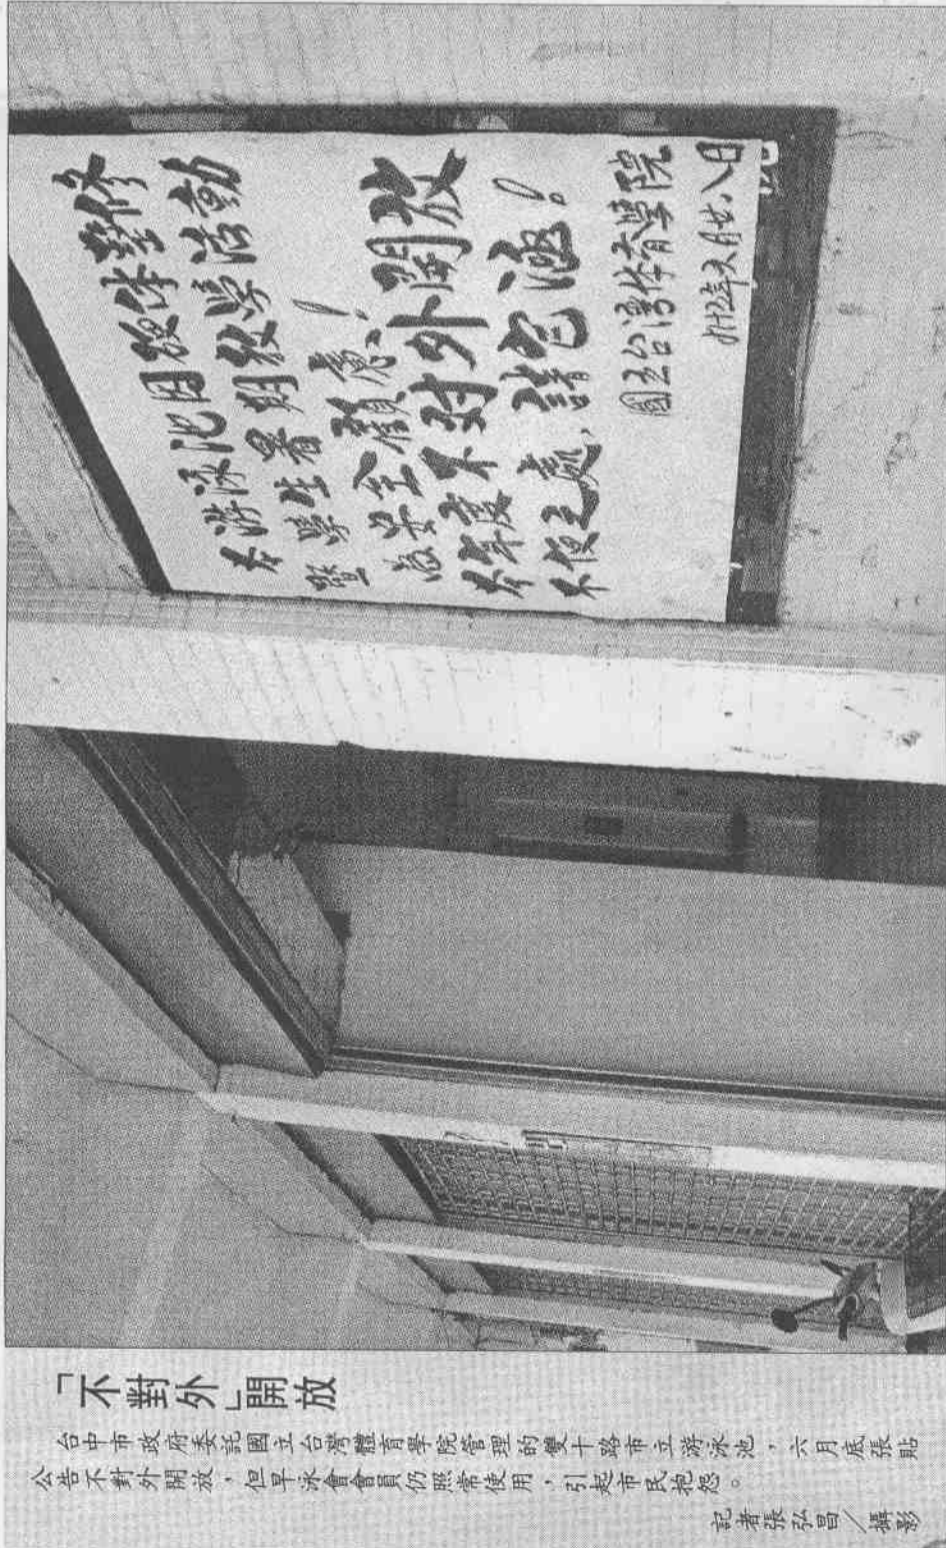 本游泳池因硬体整修
暨學生暑期教學活動
為安全顧慮!
本年度不对外開放!
不便之處、請包涵!
國立台灣体育學院
年六月廿八日
「不對外」開放
台中市政府委託國立台灣體育學院管理的雙十路市立游泳池,六月底張貼
公告不對外開放,但早泳會會員仍照常使用,引起市民抱怨。
記者張弘昌/攝影